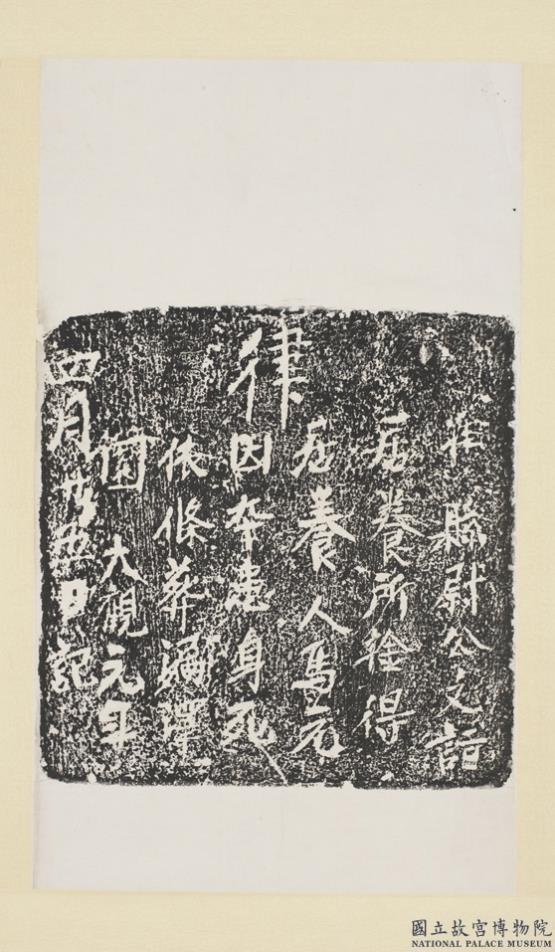 准 縣尉公文詣
居養所拴得
居養人馬元
律因夲患身死
依條葬漏澤
園 大觀元年
四月廿五日記
國立故宮博物院
NATIONAL PALACE MUSEUM